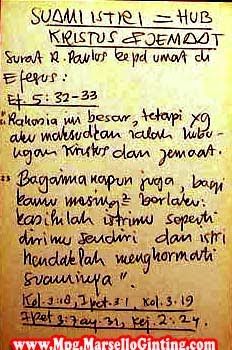 SUAMI ISTRI = HUB
KRISTUS & JEMAAT
Surat R. Paulus kepd umat di
Efesus :
Ef. 5: 32-33
"Rahasia ini besar, tetapi yg
aku maksudkan ialah hubu-
ngan Kristus dan jemaat.
33 Bagaimanapun juga, bagi
kamu masing2 berlaku:
kasihilah istrimu seperti
dirimu sendiri dan istri
hendaklah menghormati
suaminya".
Kol. 3:18, I Pet. 3:1, Kol. 3:19
I Pet 3:7 ay. 31, Kej. 2:24
www.Mpg.MarselloGinting.com